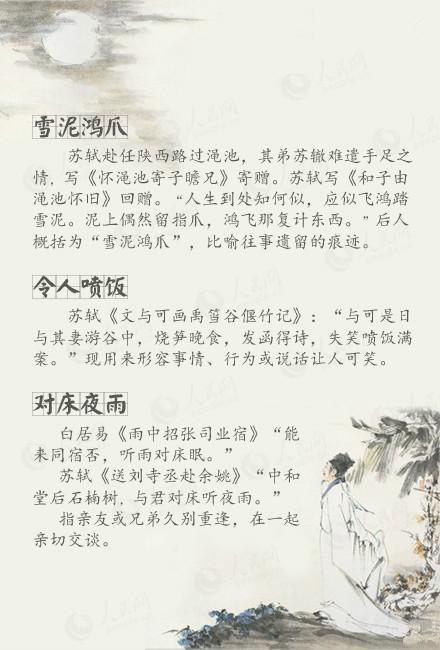 雪泥鸿爪
苏轼赴任陕西路过渑池，其弟苏辙难遣手足之
情，写《怀渑池寄子瞻兄》寄赠。苏轼写《和子由
渑池怀旧》回赠。“人生到处知何似，应似飞鸿踏
雪泥。泥上偶然留指爪，鸿飞那复计东西。”后人
概括为“雪泥鸿爪”，比喻往事遗留的痕迹。
令人喷饭
苏轼《文与可画禹筜谷偃竹记》：“与可是日
与其妻游谷中，烧笋晚食，发函得诗，失笑喷饭满
案。”现用来形容事情、行为或说话让人可笑。
对床夜雨
白居易《雨中招张司业宿》“能
来同宿否，听雨对床眠。”
苏轼《送刘寺丞赴余姚》“中和
堂后石楠树，与君对床听夜雨。”
指亲友或兄弟久别重逢，在一起
亲切交谈。
人民网